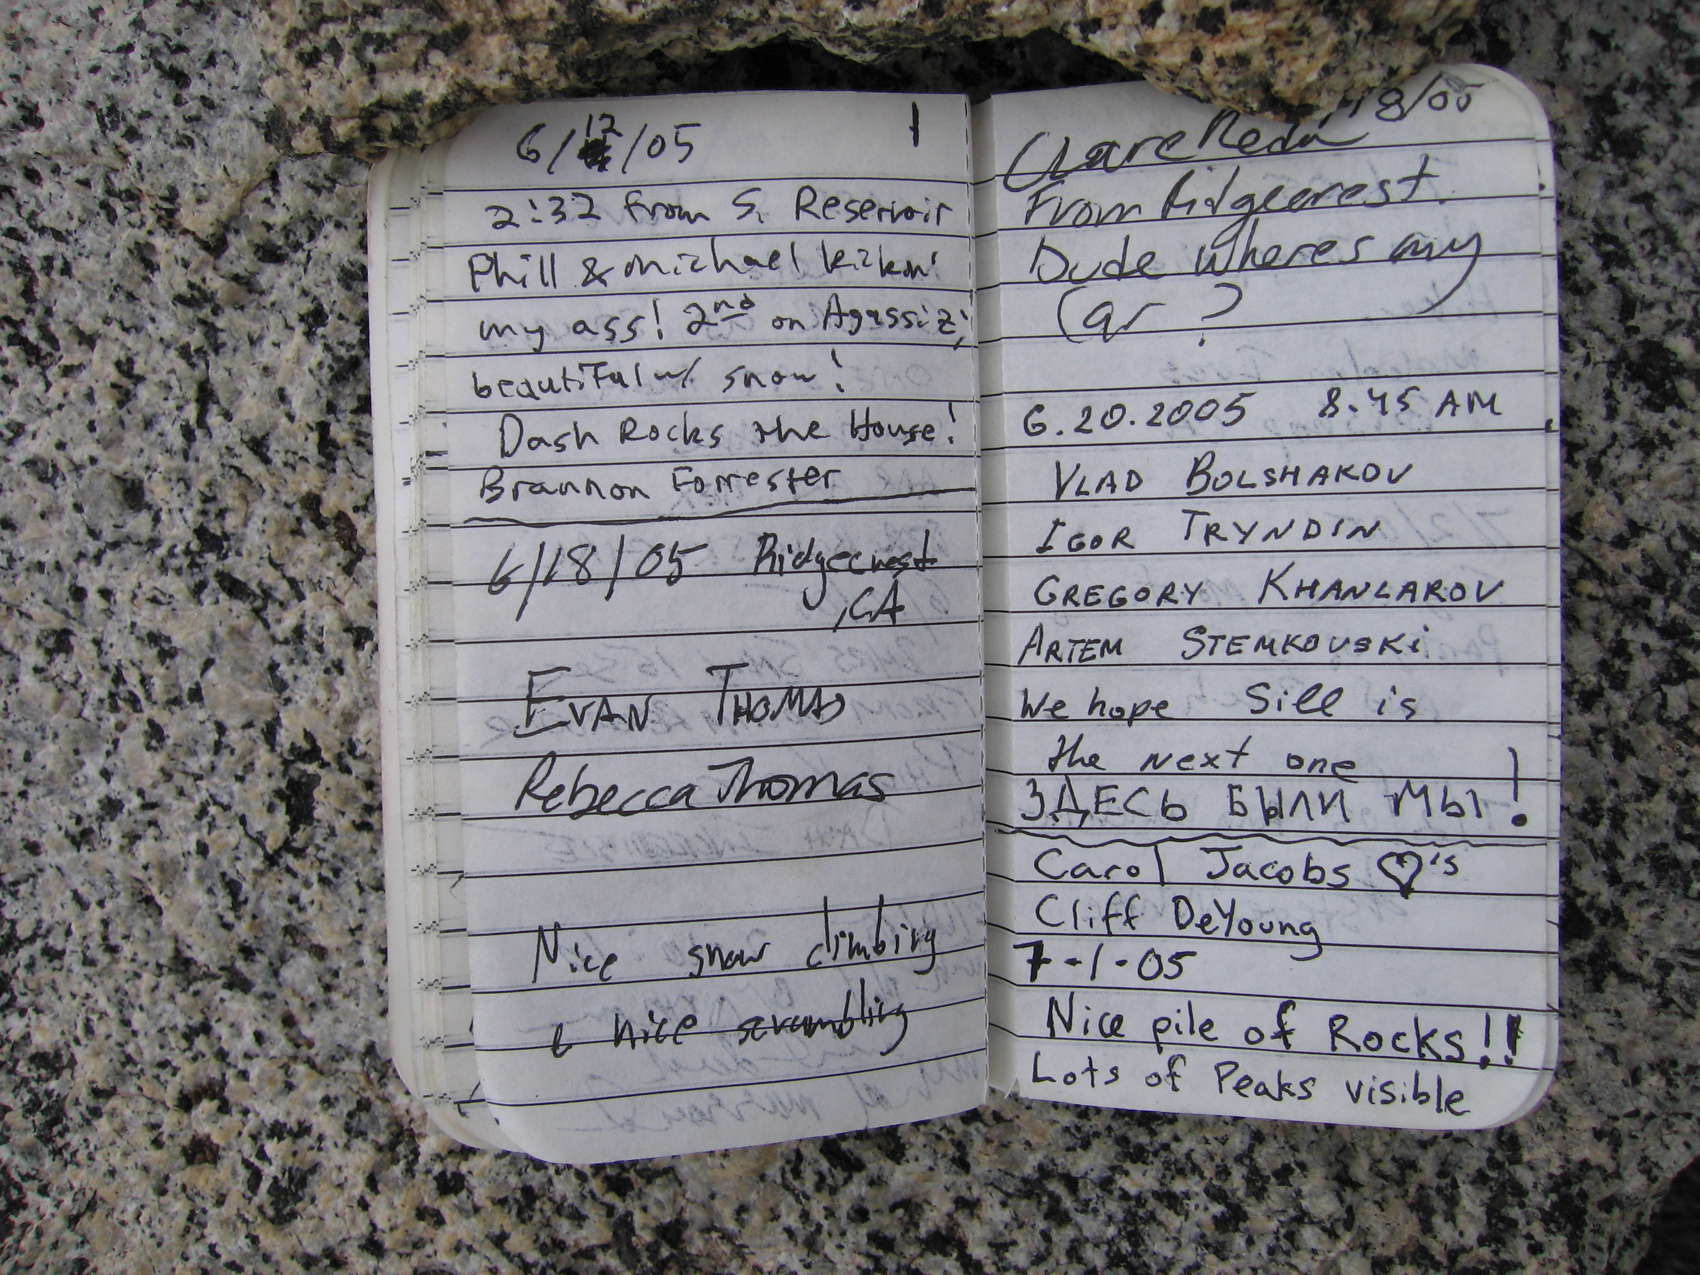 6/12/05 1
2:32 from S. Reservoir
Phill & Michael kickin'
my ass! 2nd on Agassiz;
beautiful w/ snow!
Dash Rocks the House!
Brannon Forrester
6/18/05 Ridgecrest
, CA
EVAN THOMAS
Rebecca Thomas
Nice snow climbing
& nice scrambling
18/05
Clare
From Ridgecrest.
Dude wheres my
Car ?
6.20.2005 8.45 AM
VLAD BOLSHAKOV
IGOR TRYNDIN
GREGORY KHANLAROV
ARTEM STEMKOVSKi
We hope Sill is
the next one
ЗДЕСЬ БЫЛИ МЫ!
Carol Jacobs ♡'s
Cliff DeYoung
7-1-05
Nice pile of Rocks!!
Lots of Peaks visible